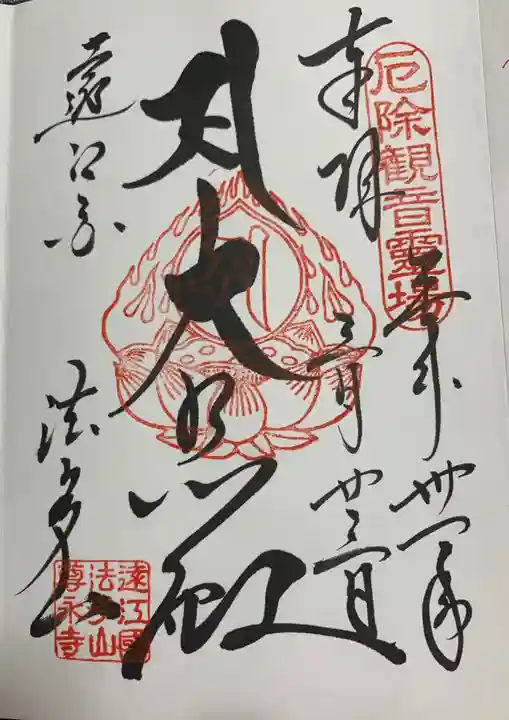 厄除観音靈場
奉拝
平成卅一年
三月廿三日
大
遠江
法多山
遠江國
法多山
尊永寺